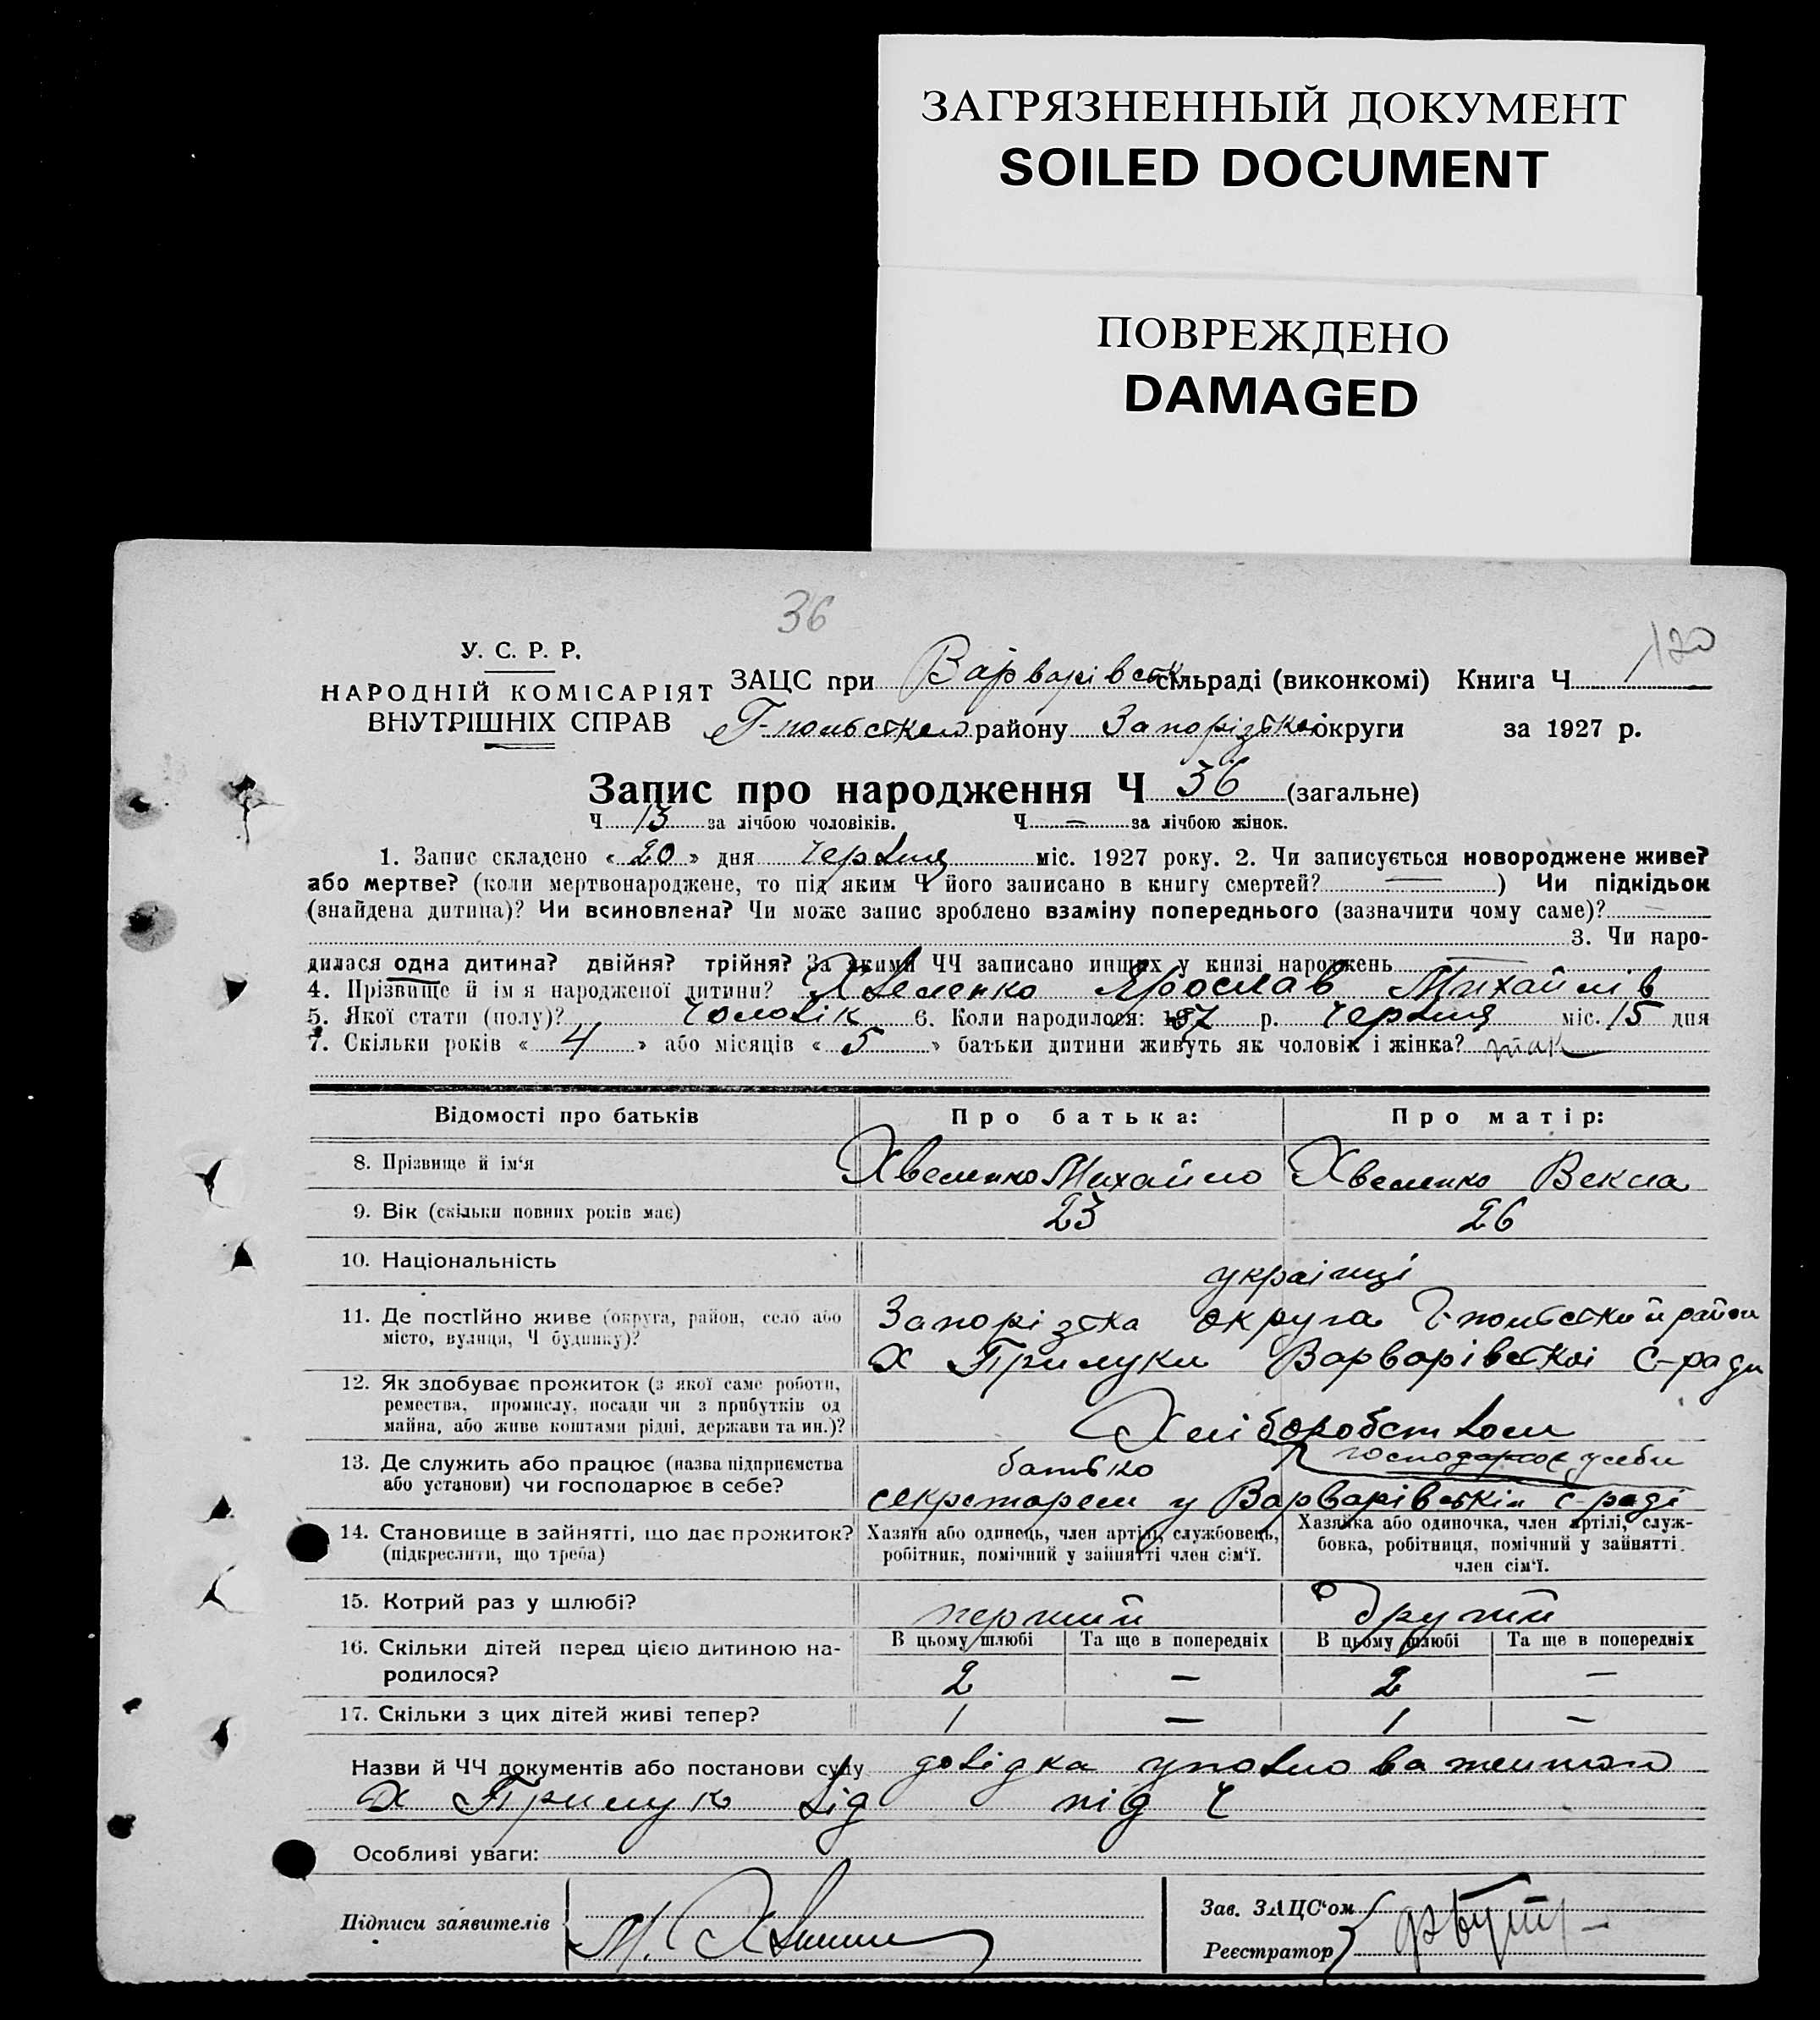 ЗАГРЯЗНЕННЫЙ ДОКУМЕНТ
SOILED DOCUMENT
ПОВРЕЖДЕНО
DAMAGED
36
120
У. С. Р. Р.
НАРОДНІЙ КОМІСАРІЯТ
ВНУТРІШНІХ СПРАВ
ЗАЦС при Варварівськ сільраді (виконкомі) Книга Ч 1
Г-польського району Запорізької округи за 1927 р.
Запис про народження Ч 36 (загальне)
Ч 13 за лічбою чоловіків. Ч — за лічбою жінок.
1. Запис складено « 20 » дня червня міс. 1927 року. 2. Чи записується новороджене живе?
або мертве? (коли мертвонароджене, то під яким Ч його записано в книгу смертей? — ) Чи підкідьок
(знайдена дитина)? Чи всиновлена? Чи може запис зроблено взаміну попереднього (зазначити чому саме)? —
3. Чи наро-
дилася одна дитина? двійня? трійня? За якими ЧЧ записано инших у книзі народжень —
4. Прізвище й ім я народженої дитини? Хвеленко Ярослав Михайлів
5. Якої стати (полу)? чоловік 6. Коли народилося: 1927 р. червня міс. 15 дня
7. Скільки років « 4 » або місяців « 5 » батьки дитини живуть як чоловік і жінка? так
Відомості про батьків Про батька: Про матір:
8. Прізвище й ім'я Хвеленко Михайло Хвеленко Векла
9. Вік (скільки повних років має) 23 26
10. Національність українці
11. Де постійно живе (округа, район, село або Запорізька округа Г-польський район
місто, вулиця, Ч будинку)? Х Прилуки Варварівської С-ради
12. Як здобуває прожиток (з якої саме роботи,
ремества, промислу, посади чи з прибутків од
майна, або живе коштами рідні, держави та ин.)? Хліборобством
13. Де служить або працює (назва підприємства батько господарює у себе
або установи) чи господарює в себе? секретарем у Варварівській с-раді
14. Становище в зайнятті, що дає прожиток? Хазяїн або одинець, член артілі, службовець, Хазяйка або одиночка, член артілі, служ-
(підкреслити, що треба) робітник, помічний у зайнятті член сім'ї. бовка, робітниця, помічний у зайнятті
член сім'ї.
15. Котрий раз у шлюбі? перший другий
16. Скільки дітей перед цією дитиною на- В цьому шлюбі Та ще в попередніх В цьому шлюбі Та ще в попередніх
родилося? 2 — 2 —
17. Скільки з цих дітей живі тепер? 1 — 1 —
Назви й ЧЧ документів або постанови суду довідка уповноваженого
х Прилук від під Ч
Особливі уваги:
Підписи заявителів М.
Зав. ЗАЦС'ом
Реєстратор